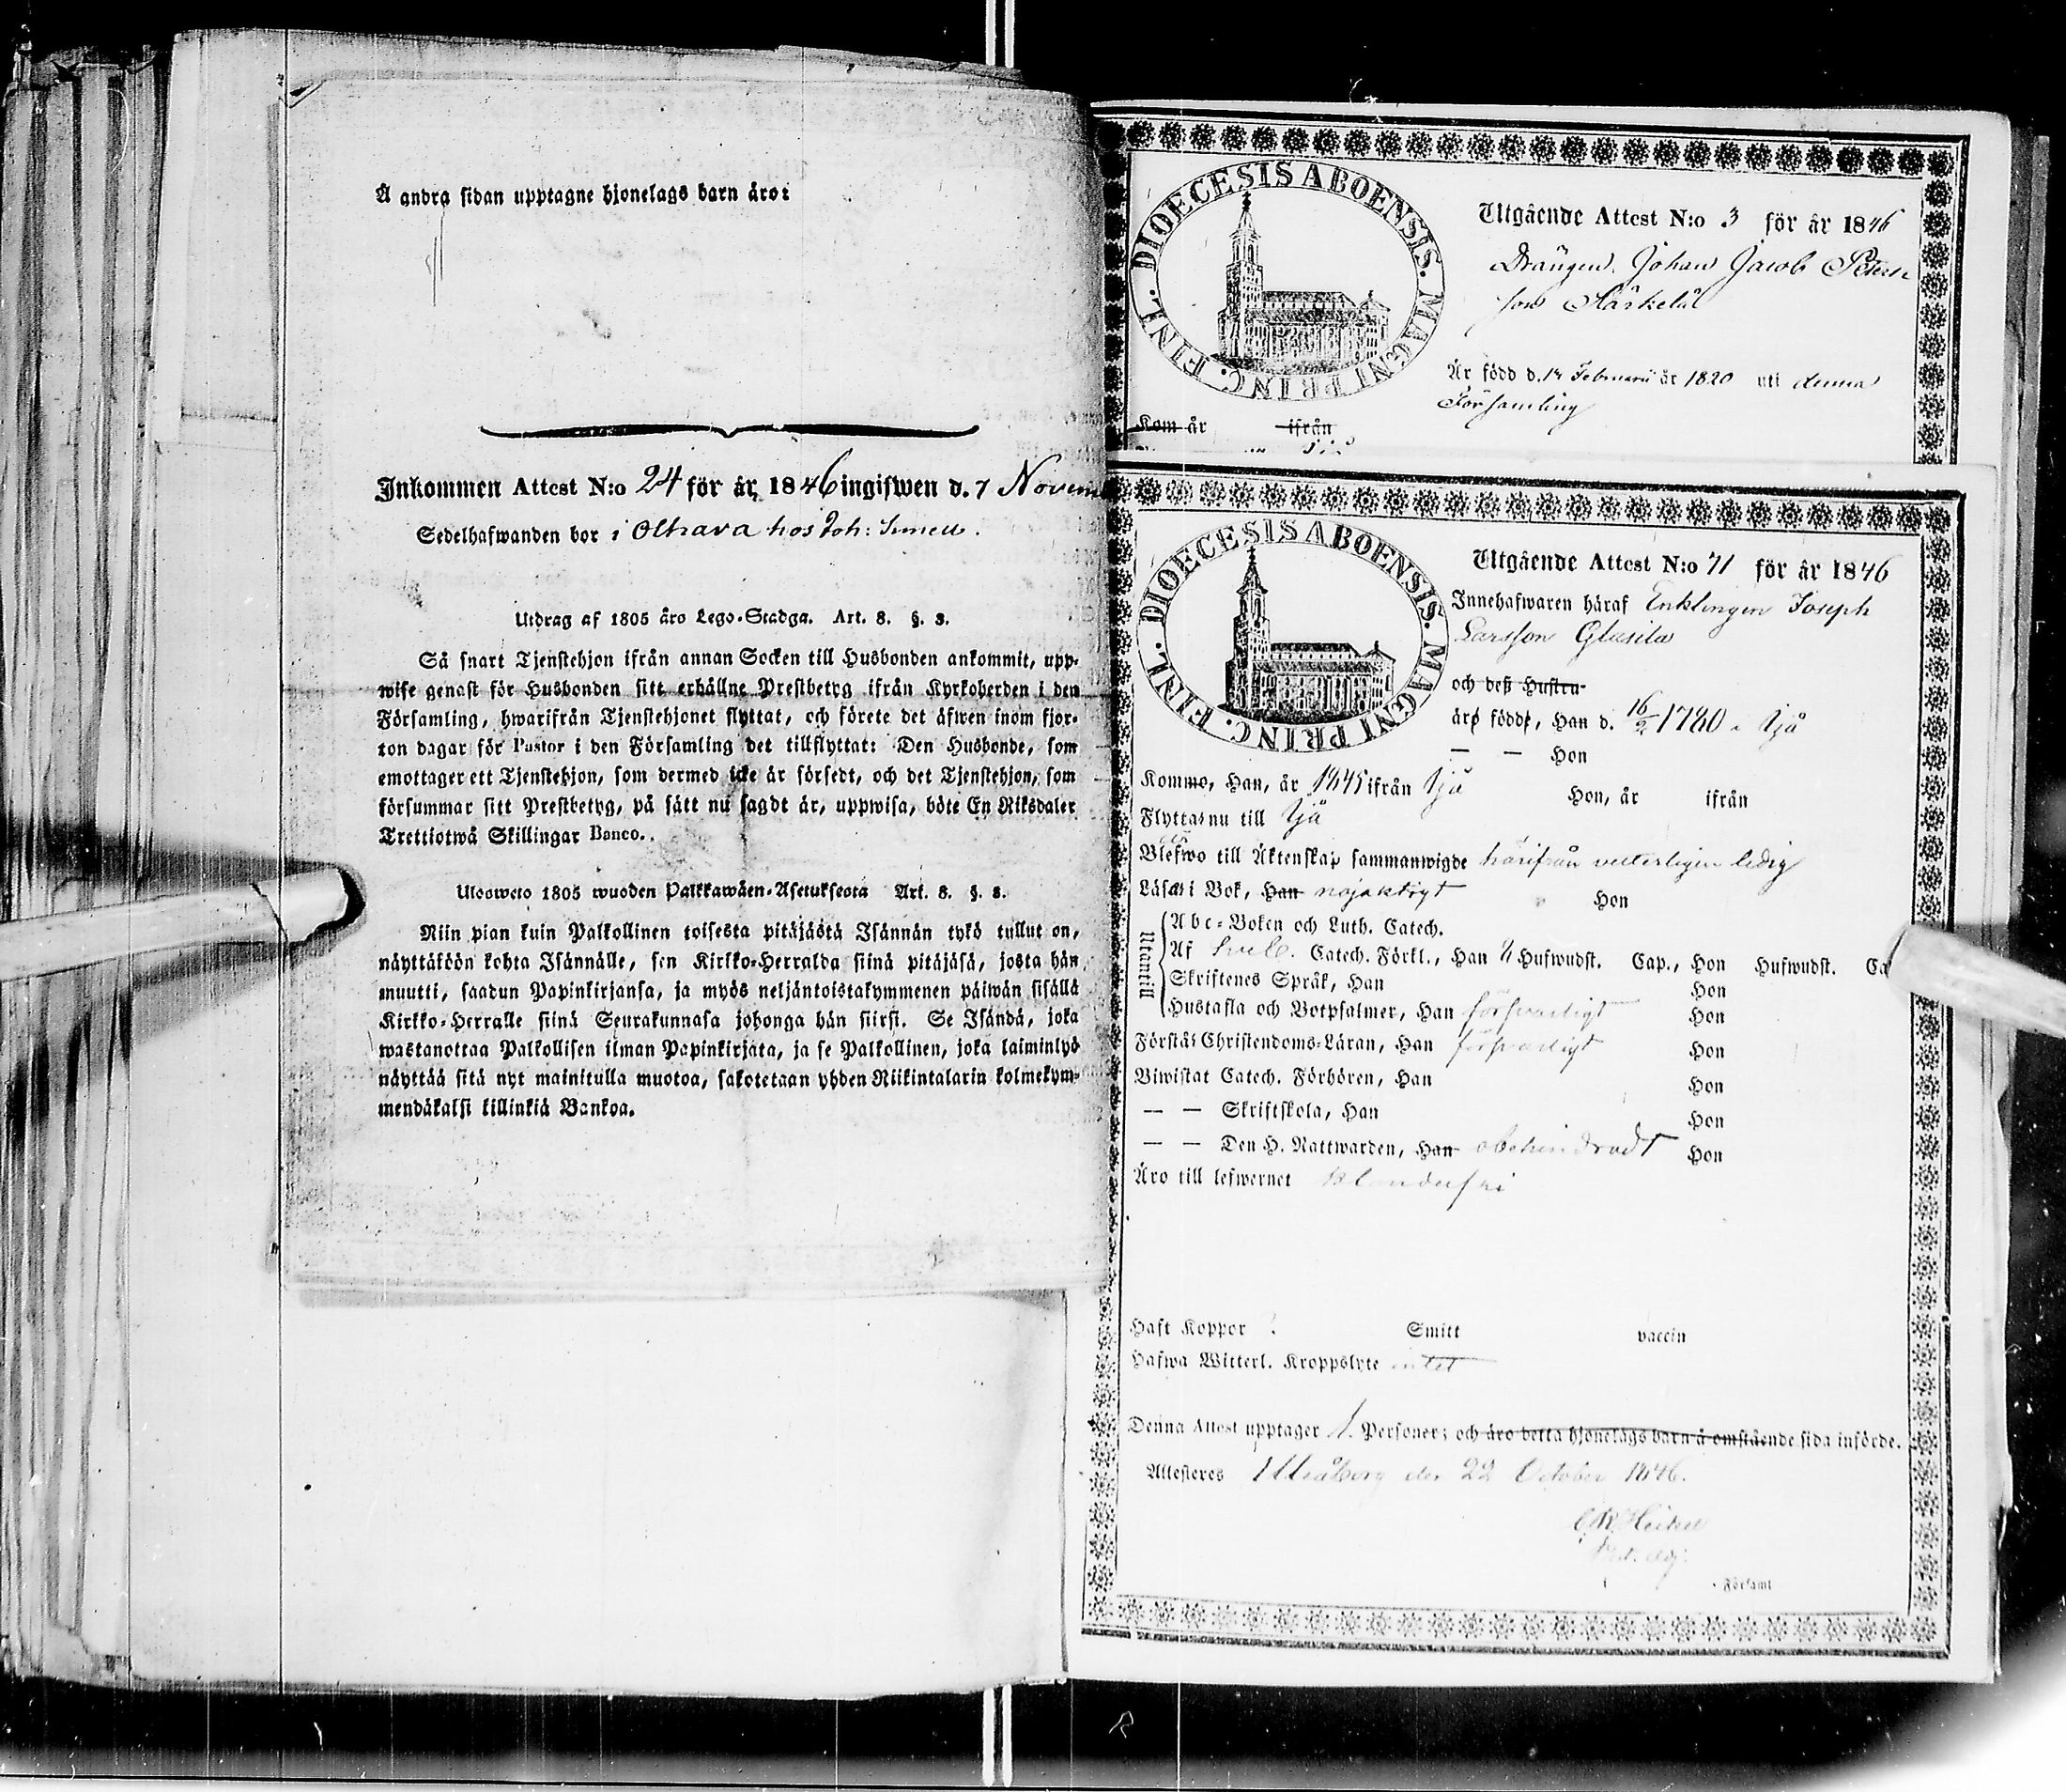 Å andra sidan upptagne hjonelags barn äro:
Inkommen Attest N:o 24 för år 1846 ingifwen d. 7 Novem
Sedelhafwanden bor i Olhava hos Joh:
Utdrag af 1805 åro Lego-Stadga. Art. 8. §. 3.
Så snart Tjenstehjon ifrån annan Socken till Husbonden ankommit, upp-
wise genast för Husbonden sitt erhållne Prestbetyg ifrån Kyrkoherden i den
Församling, hwarifrån Tjenstehjonet flyttat, och förete det äfwen inom fjor-
ton dagar för Pastor i den Församling det tillflyttat: Den Husbonde, som
emottager ett Tjenstehjon, som dermed icke är försedt, och det Tjenstehjon, som
försummar sitt Prestbetyg, på sätt nu sagdt är, uppwisa, böte En Riksdaler
Trettiotwå Skillingar Banco.
Ulosweto 1805 wuoden Palkkawäen-Asetuksesta Art. 8. §. 3.
Niin pian kuin Palkollinen toisesta pitäjästä Isännän tykö tullut on,
näyttäköön kohta Isännälle, sen Kirkko-Herralda siinä pitäjäsä, josta hän
muutti, saadun Papinkirjansa, ja myös neljäntoistakymmenen päiwän sisällä
Kirkko-Herralle siinä Seurakunnasa johonga hän siirsi. Se Isändä, joka
wastanottaa Palkollisen ilman Papinkirjata, ja se Palkollinen, joka laiminlyö
näyttää sitä nyt mainitulla muotoa, sakotetaan yhden Riikintalarin kolmekym-
mendäkaksi killinkiä Bankoa.
DIOECESIS ABOENSIS. MAGNI PRINC. FINL.
Utgående Attest N:o 3 för år 1846
Drängen Johan Jacob Peters
son
Är född d. 14 Februarii år 1820 uti denna
Församling
Kom år ifrån
DIOECESIS ABOENSIS. MAGNI PRINC. FINL.
Utgående Attest N:o 71 för år 1846
Innehafwaren häraf Enklingen Joseph
Larsson Glusila
och deß Hustru
äro födde, Han d. 16/2 1780 i Ijå
— — Hon
Kommo, Han, år 1845 ifrån Ijå Hon, år ifrån
Flyttas nu till Ijå
Blefwo till Äktenskap sammanwigde härifrån vetterligen ledig
Läsa i Bok, Han nöjaktigt Hon
Utantill
Abc-Boken och Luth. Catech.
Af Sveb. Catech. Förkl., Han Hufwudst. Cap., Hon Hufwudst. Ca
Skriftenes Språk, Han Hon
Hustafla och Botpsalmer, Han försvarligt Hon
Förstår Christendoms-Läran, Han försvarligt Hon
Biwistat Catech. Förhören, Han Hon
— — Skriftskola, Han Hon
— — Den H. Nattwarden, Han obehindradt Hon
Äro till lefwernet
Haft Koppor ? Smitt vaccin
Hafwa Witterl. Kroppslyte intet
Denna Attest upptager 1. Personer; och äro detta hjonelags barn å omstående sida införde.
Attesteras Uleåborg den 22 October 1846.
Församl